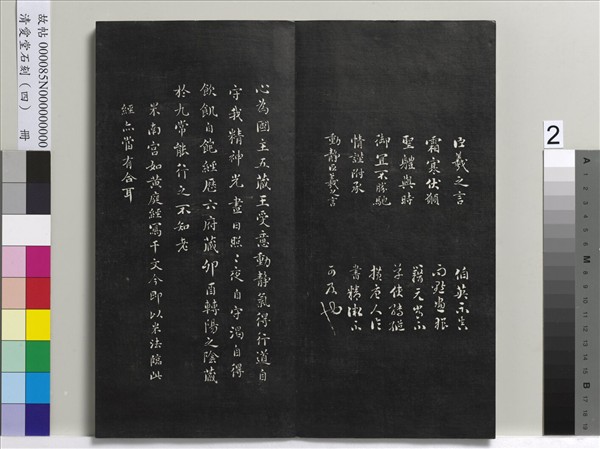 臣羲之言
霜寒伏願
聖體與時
御宜不勝馳
情謹附承
動靜臣羲之言
伯英不真
而點畫狼
藉元常不
草使轉縱
橫唐人作
書精微不
可及也
心為國主五藏王受意動靜氣得行道自
守我精神光晝日照〻夜自守渴自得
飲飢自飽經歷六府藏卯酉轉陽之陰藏
於九常能行之不知老
米南宮如黃庭經寫千文今即以米法臨此
經亦當有合耳
故帖 000085N000000000
清愛堂石刻(四) 冊
2
A
M
B